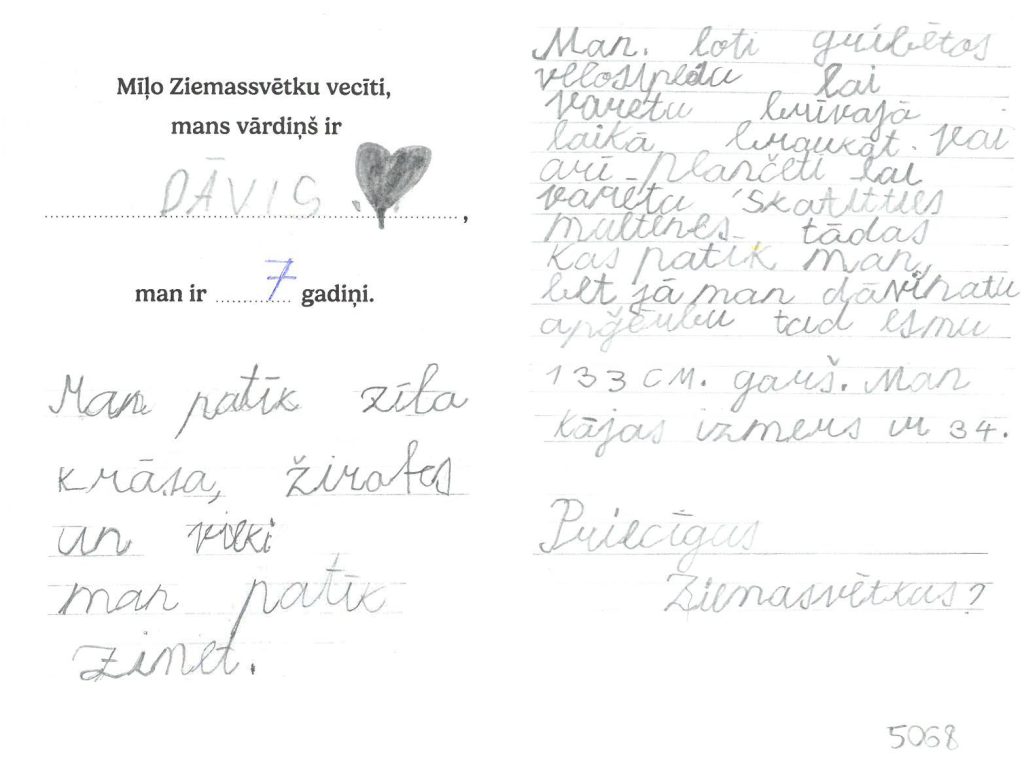 Mīļo Ziemassvētku vecīti,
mans vārdiņš ir
DĀVIS
man ir 7 gadiņi.
Man patīk zīla
krāsa, žirafes
un vilki
man patīk
zinet.
Man. loti gribētos
velosipedu lai
varetu brīvajā
laikā braukāt. Vai
arī plančeti lai
varetu skatītties
multenes tādas
kas patīk man,
bet jā man dāvinatu
apģērbu tad esmu
133 cm. garš. Man
kājas izmers ir 34.
Priecīgus
Ziemasvētkus?
5068